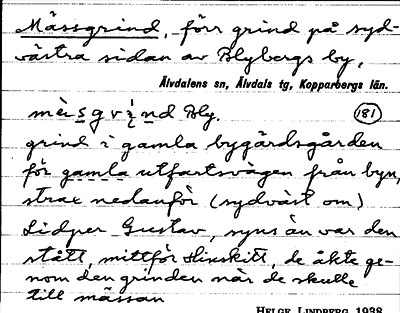 Mässgrind, förr grind på syd-
västra sidan av Blybergs by,
Älvdalens sn, Älvdals tg, Kopparbergs län.
181
Bly.
grind i gamla bygärdsgården
för gamla utfartsvägen från byn,
strax nedanför (sydväst om)
Lidper Gustav, syns än var den
stått, mittför, de åkte ge-
nom den grinden när de skulle
till mässan
HELGE LINDBERG 1938